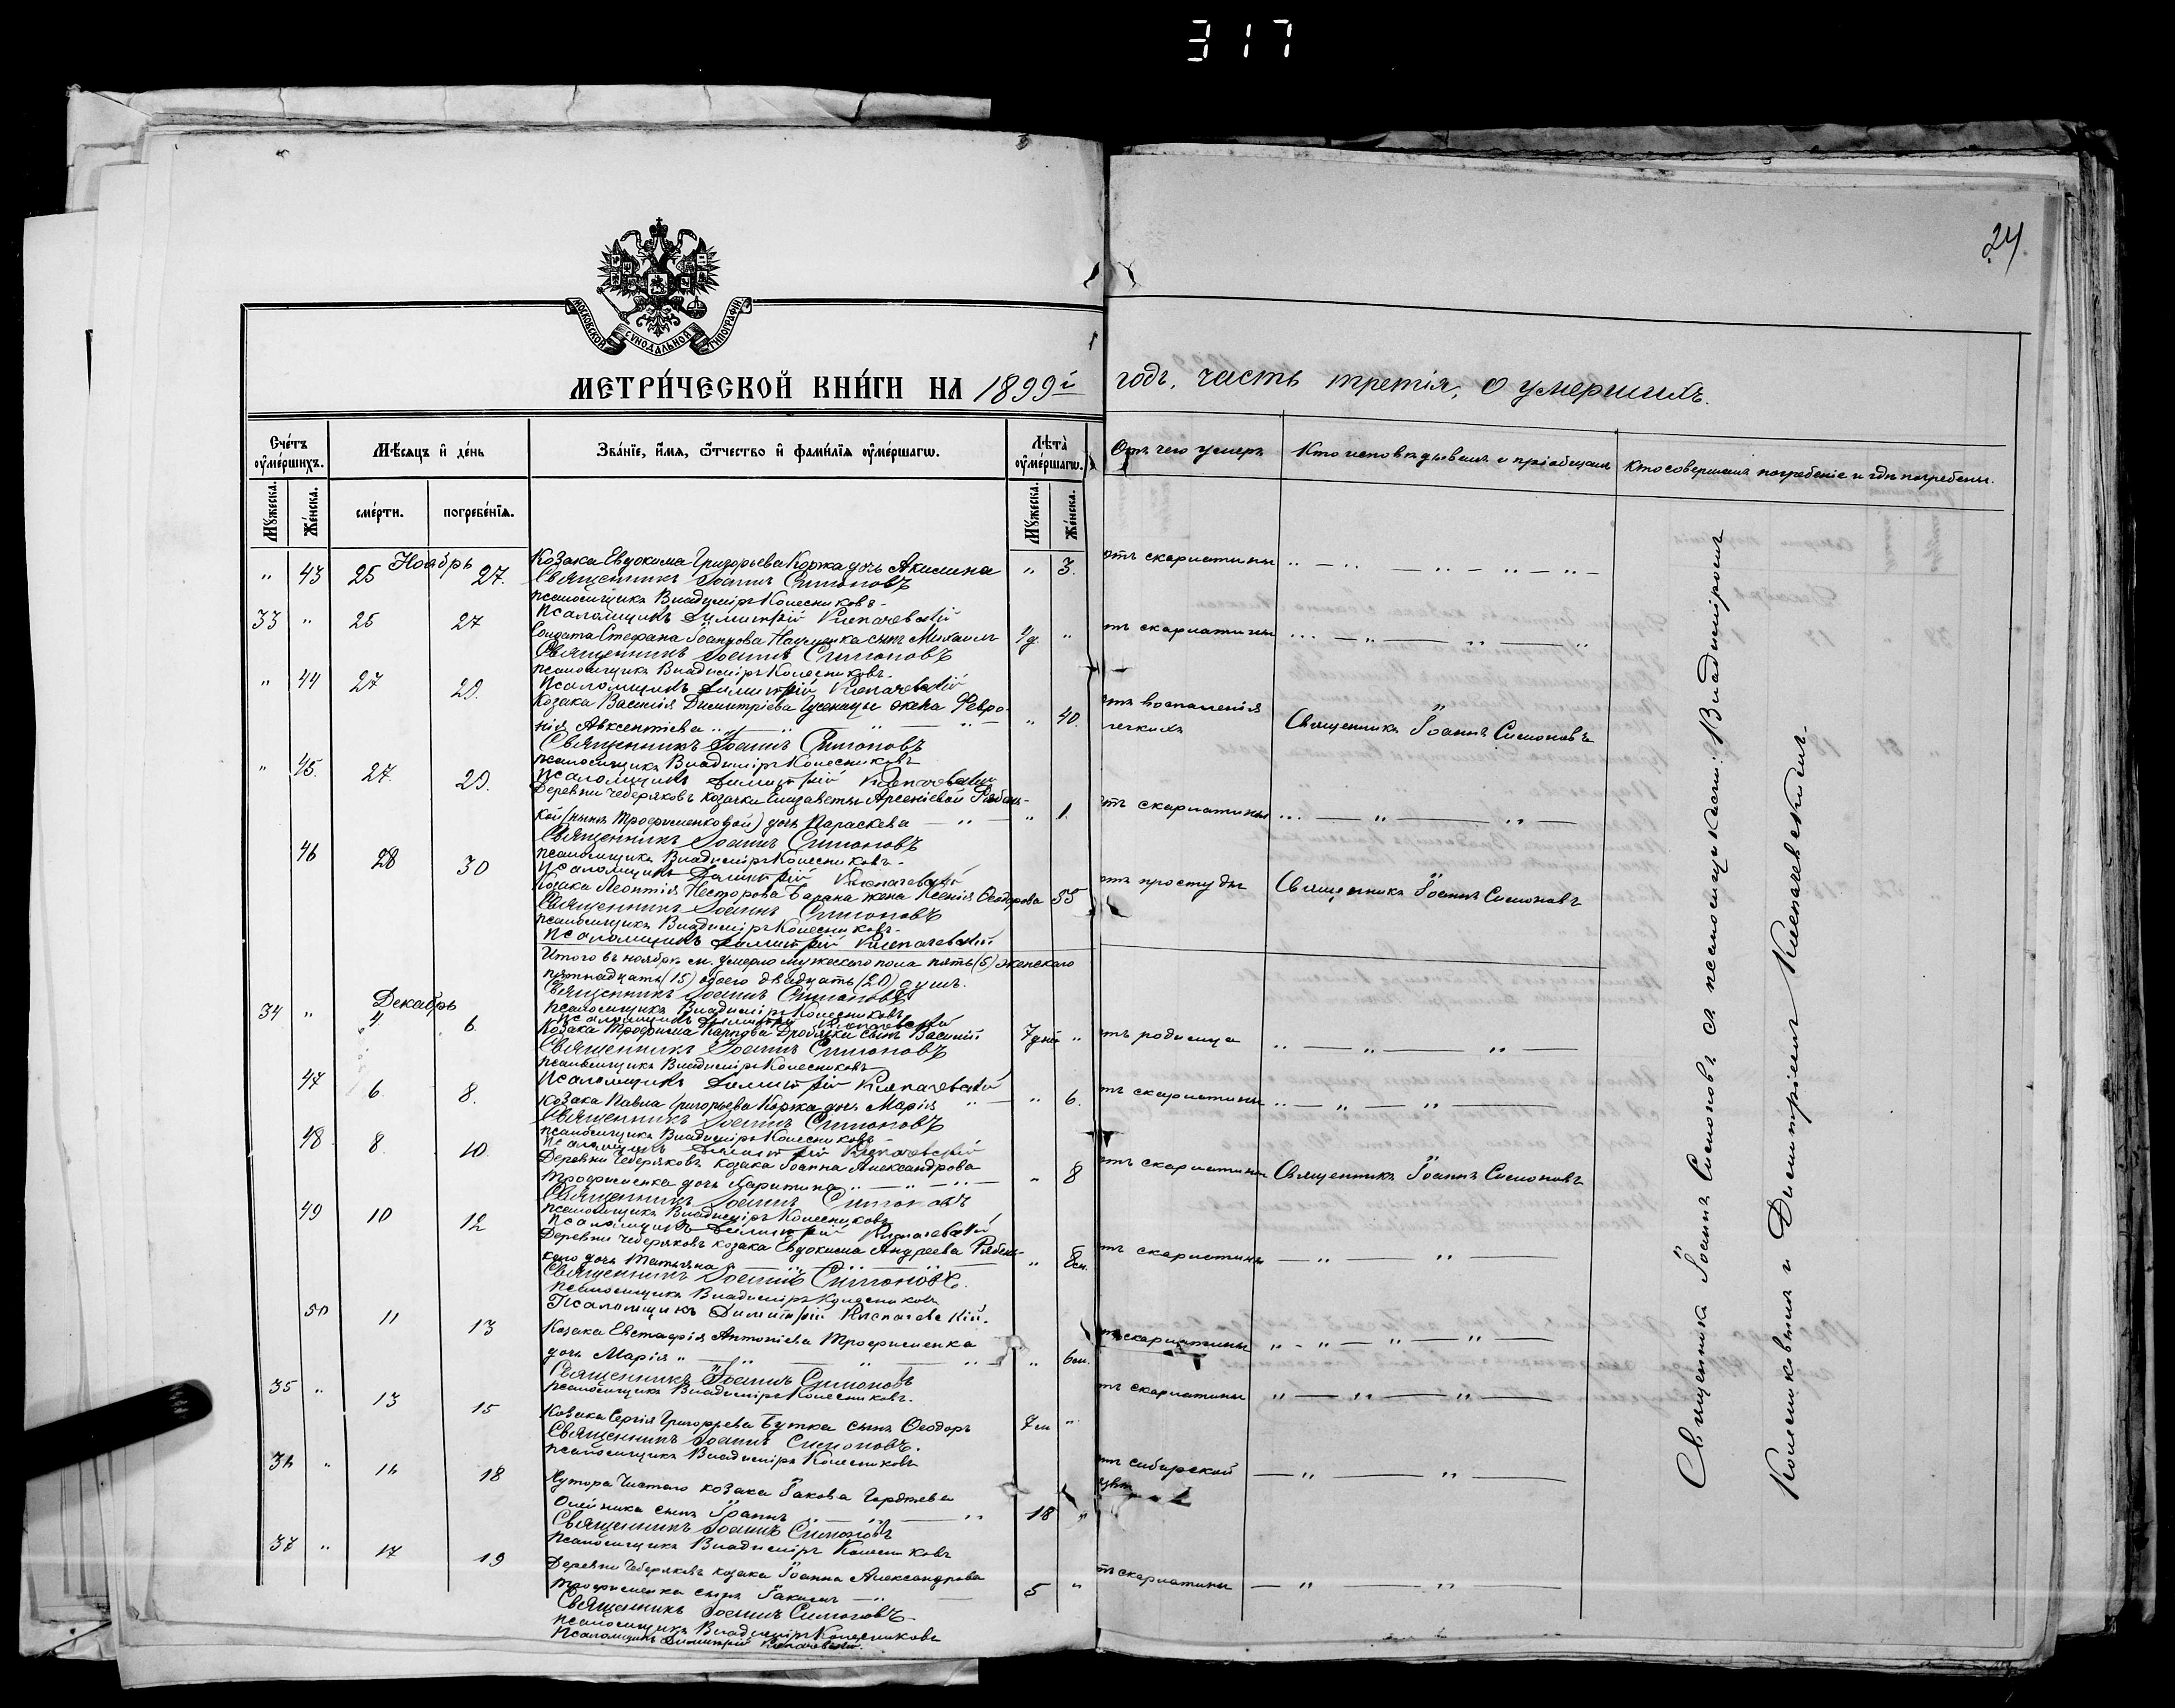 317
24
МОСКОВСКОЙ СѴНОДАЛЬНОЙ ТИПОГРАФІИ
МЕТРИ́ЧЕСКОЙ КНИ́ГИ НА 1899й годъ, часть третія, о умершихъ.
Сче́тъ ᲂумершихъ.
Мѣ́сяцъ и де́нь
Зва́нїе, и́мя, ѻ҆тчество и фами́лїя ᲂумершагѡ.
Лѣта ᲂумершагѡ.
Отъ чего умеръ
Кто исповѣдывалъ и пріобщалъ
Кто совершалъ погребеніе и гдѣ погребены.
Мужеска.
Женска.
сме́рти.
погребе́нїя.
Мужеска.
Женска.
Ноябрь
" 43 25 27. Козака Евдокима Григорьева Коржа дочь Акилина " 3. отъ скарлатины
Священникъ Іоаннъ Симоновъ
псаломщикъ Владиміръ Колесниковъ
Псаломщикъ Димитрій Клепачевскій
33 " 25 27 Солдата Стефана Іоаннова сынъ Михаилъ " тъ скарлатины
Священникъ Іоаннъ Симоновъ
псаломщикъ Владиміръ Колесниковъ
Псаломщикъ Димитрій Клепачевскій
" 44 27 29. Козака Василія Димитріева жена Февро-
нія Авксентіева " 40. тъ воспаленія легкихъ Священникъ Іоаннъ Симоновъ
Священникъ Іоаннъ Симоновъ
псаломщикъ Владиміръ Колесниковъ
Псаломщикъ Димитрій Клепачевскій
" 45. 27. 29. Деревни Чеберяковъ козачки Елизаветы Арсеніевой Рябень-
кой (нынѣ Трофименковой) дочь Параскева " 1. отъ скарлатины
Священникъ Іоаннъ Симоновъ
псаломщикъ Владиміръ Колесниковъ
Псаломщикъ Димитрій Клепачевскій
46 28 30 Козака Леонтія Несторова Барана жена Ксенія Ѳеодорова 55 отъ простуды Священникъ Іоаннъ Симоновъ
Священникъ Іоаннъ Симоновъ
псаломщикъ Владиміръ Колесниковъ
Псаломщикъ Димитрій Клепачевскій
Итого въ ноябрѣ м. умерло мужескаго пола пять (5) женскаго
пятнадцать (15) обоего двадцать (20) душъ.
Священникъ Іоаннъ Симоновъ
псаломщикъ Владиміръ Колесниковъ
Псаломщикъ Димитрій Клепачевскій
Декабрь
34 " 4. 6. Козака Трофима Карпова Дробязки сынъ Василій 7 дней " тъ родимца
Священникъ Іоаннъ Симоновъ
псаломщикъ Владиміръ Колесниковъ
Псаломщикъ Димитрій Клепачевскій
47 6 8. Козака Павла Григорьева Коржа дочь Марія " 6. тъ скарлатины
Священникъ Іоаннъ Симоновъ
псаломщикъ Владиміръ Колесниковъ
Псаломщикъ Димитрій Клепачевскій
48 8. 10. Деревни Чеберяковъ козака Іоанна Александрова
Трофименка дочь Харитина " 8 тъ скарлатины Священникъ Іоаннъ Симоновъ
Священникъ Іоаннъ Симоновъ
псаломщикъ Владиміръ Колесниковъ
Псаломщикъ Димитрій Клепачевскій
49 10 12 Деревни Чеберяковъ козака Евдокима Андреева Рябень-
каго дочь Татьяна " 8м. тъ скарлатины
Священникъ Іоаннъ Симоновъ.
псаломщикъ Владиміръ Колесниковъ
Псаломщикъ Димитрій Клепачевскій.
50 11 13 Козака Евстафія Антоніева Трофименка
дочь Марія " " 6м. тъ скарлатины
Священникъ Іоаннъ Симоновъ
псаломщикъ Владиміръ Колесниковъ.
35 " 13 15 Козака Сергія Григорьева Бутка сынъ Ѳеодоръ 7м " тъ скарлатины
Священникъ Іоаннъ Симоновъ.
псаломщикъ Владиміръ Колесниковъ
36 " 16 18 Хутора Чистаго козака Іакова Гордѣева
Олейника сынъ Іоаннъ 18 " тъ сибирской
Священникъ Іоаннъ Симоновъ
псаломщикъ Владиміръ Колесниковъ
37 " 17 19 Деревни Чеберяковъ козака Іоанна Александрова
Трофименка сынъ 5 " тъ скарлатины
Священникъ Іоаннъ Симоновъ
псаломщикъ Владиміръ Колесниковъ
Псаломщикъ Димитрій Клепачевскій.
Священникъ Іоаннъ Симоновъ съ псаломщиками: Владиміромъ
Колесниковымъ и Димитріемъ Клепачевскимъ.